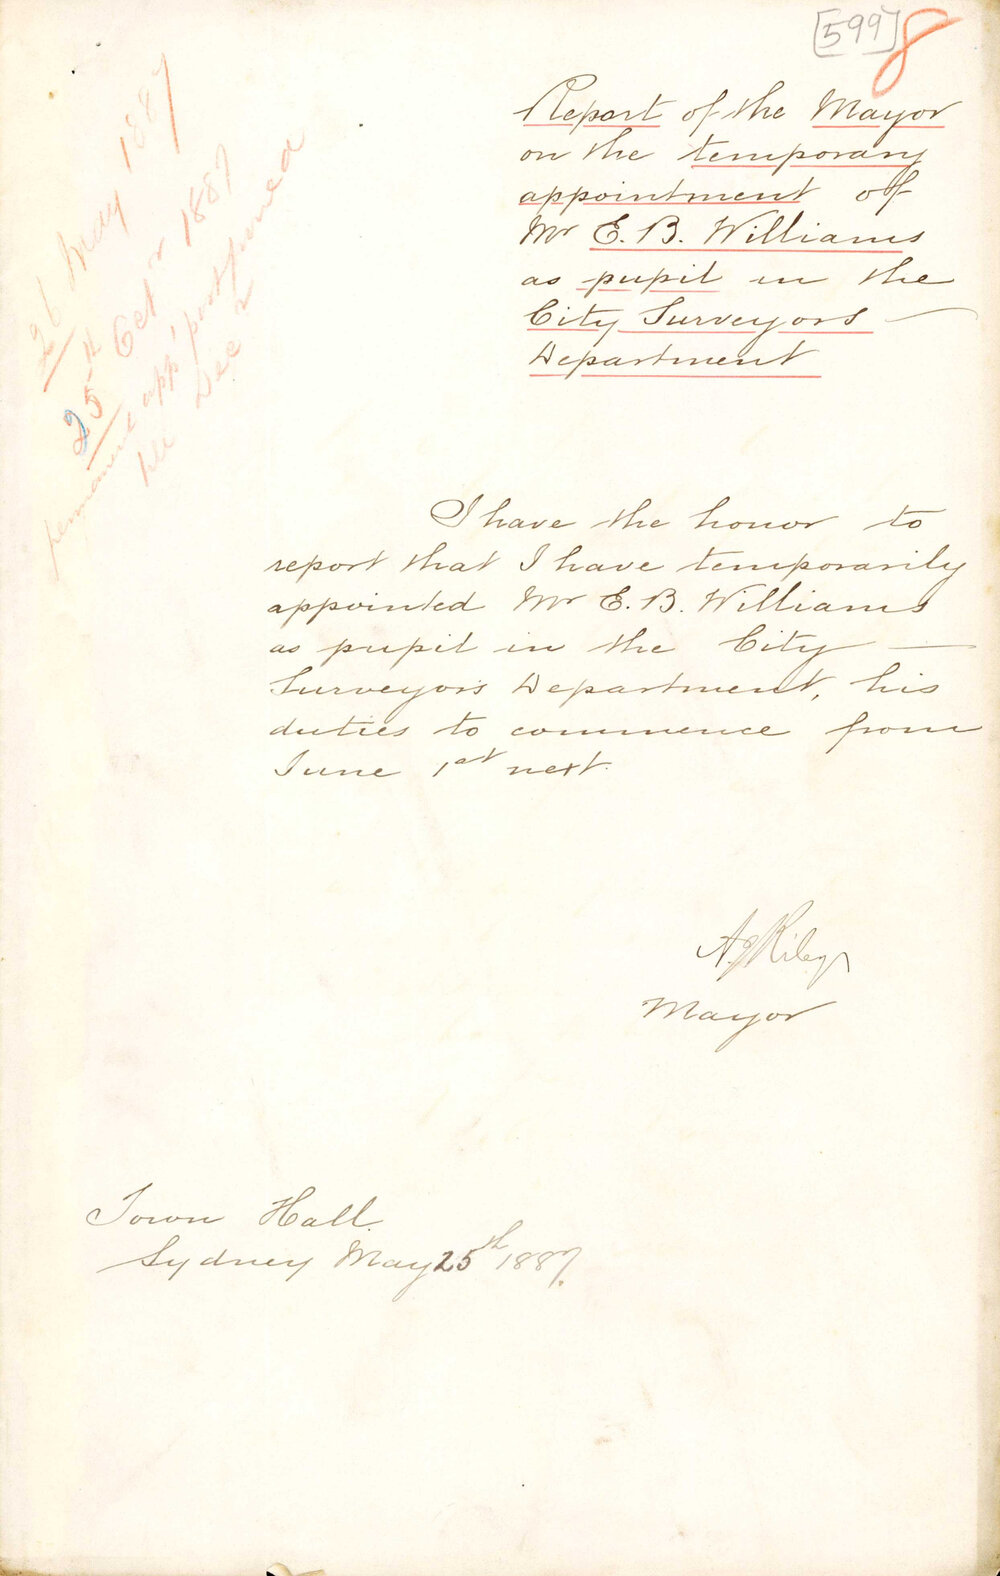 [599] 8
Report of the Mayor
on the temporary
appointment of
Mr E. B. Williams
as pupil in the
City Surveyors
Department
26 May 1887
25th Octr 1887
permanent app' postponed
till Dec
I have the honor to
report that I have temporarily
appointed Mr E. B. Williams
as pupil in the City
Surveyors Department, his
duties to commence from
June 1st next.
A J Riley
Mayor
Town Hall.
Sydney May 25th 1887.